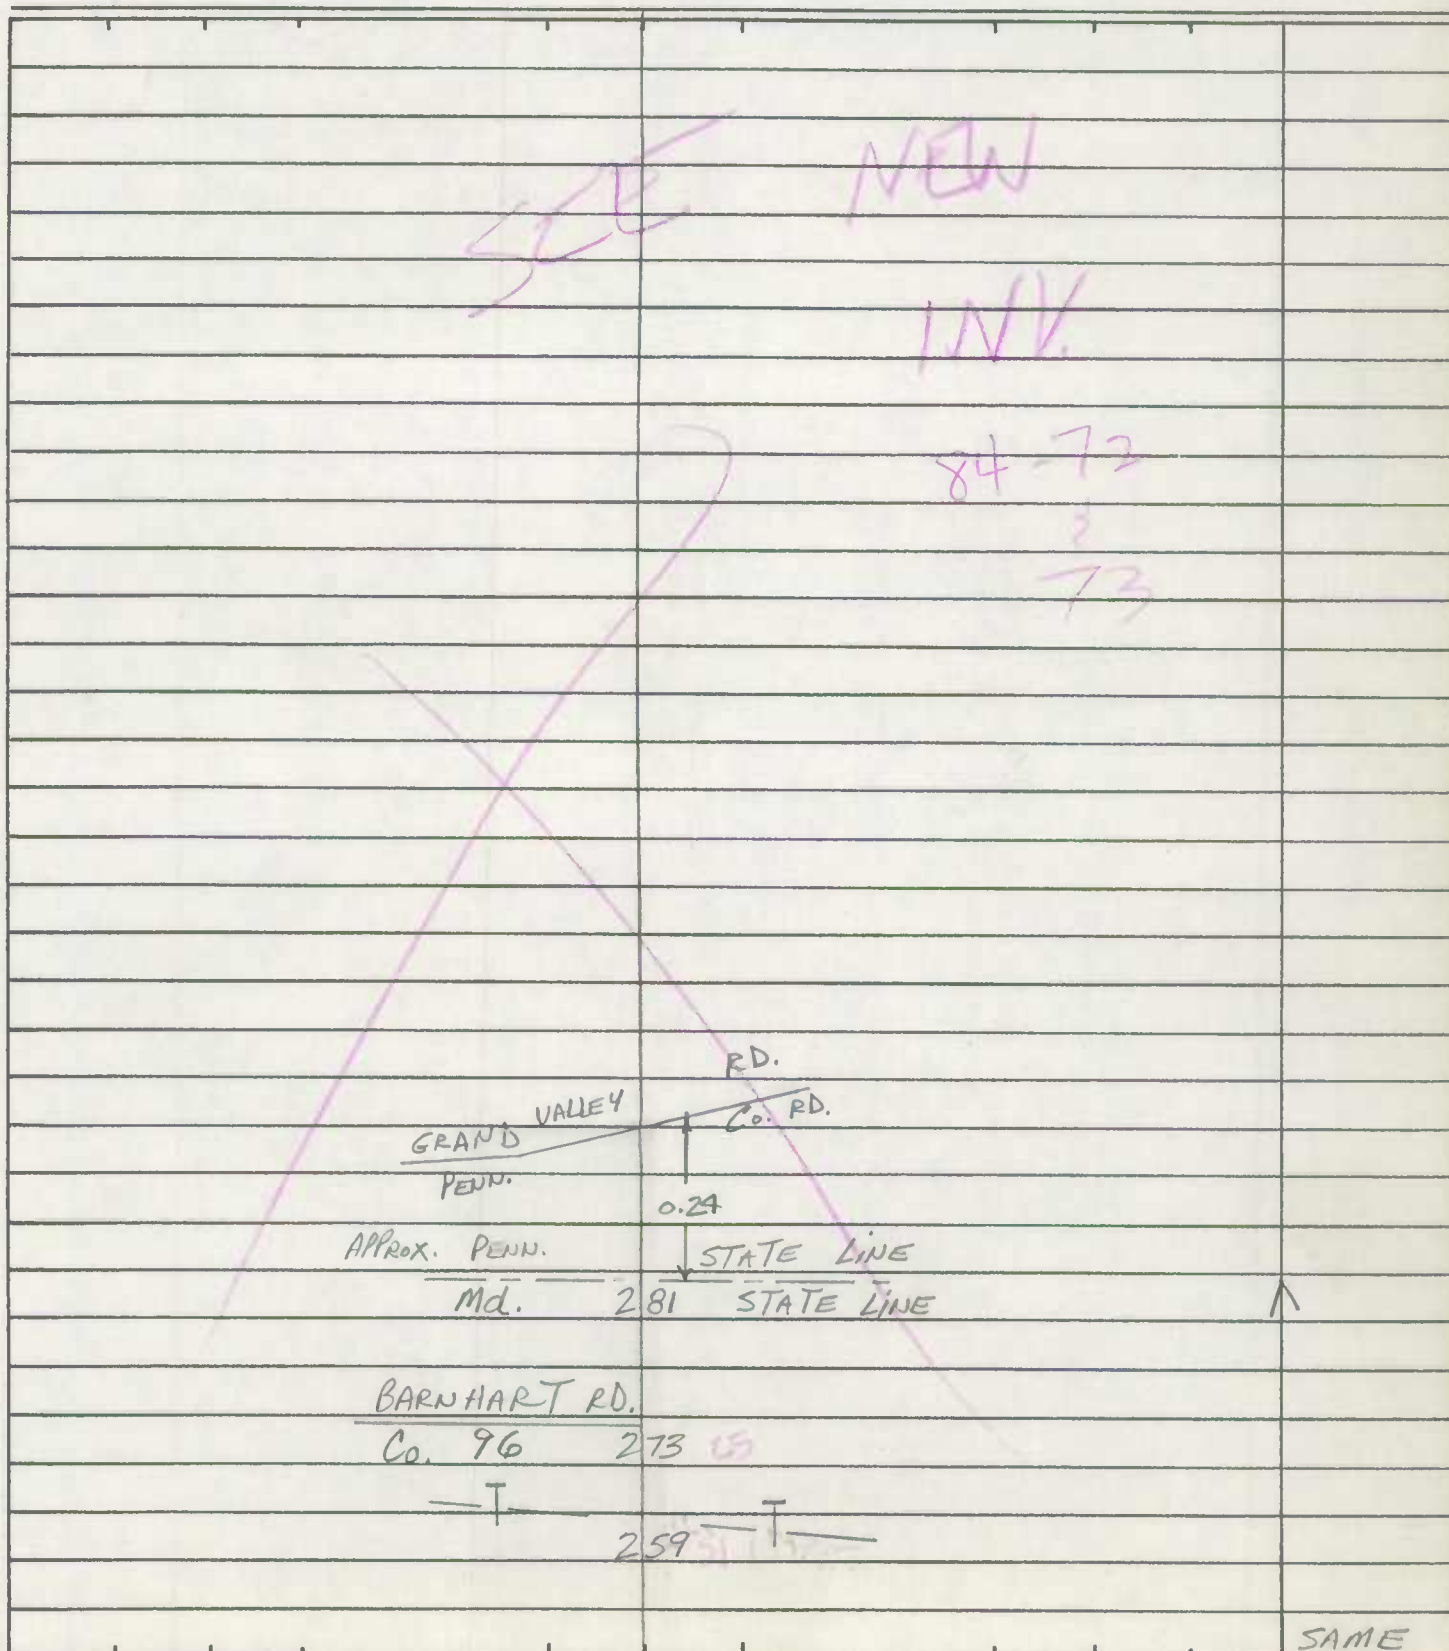 SEE NEW
INV.
84-73
73
RD.
GRAND VALLEY Co. RD.
PENN.
0.24
APPROX. PENN. STATE LINE
Md. 281 STATE LINE
BARNHART RD.
Co. 96 273
T T
259
SAME